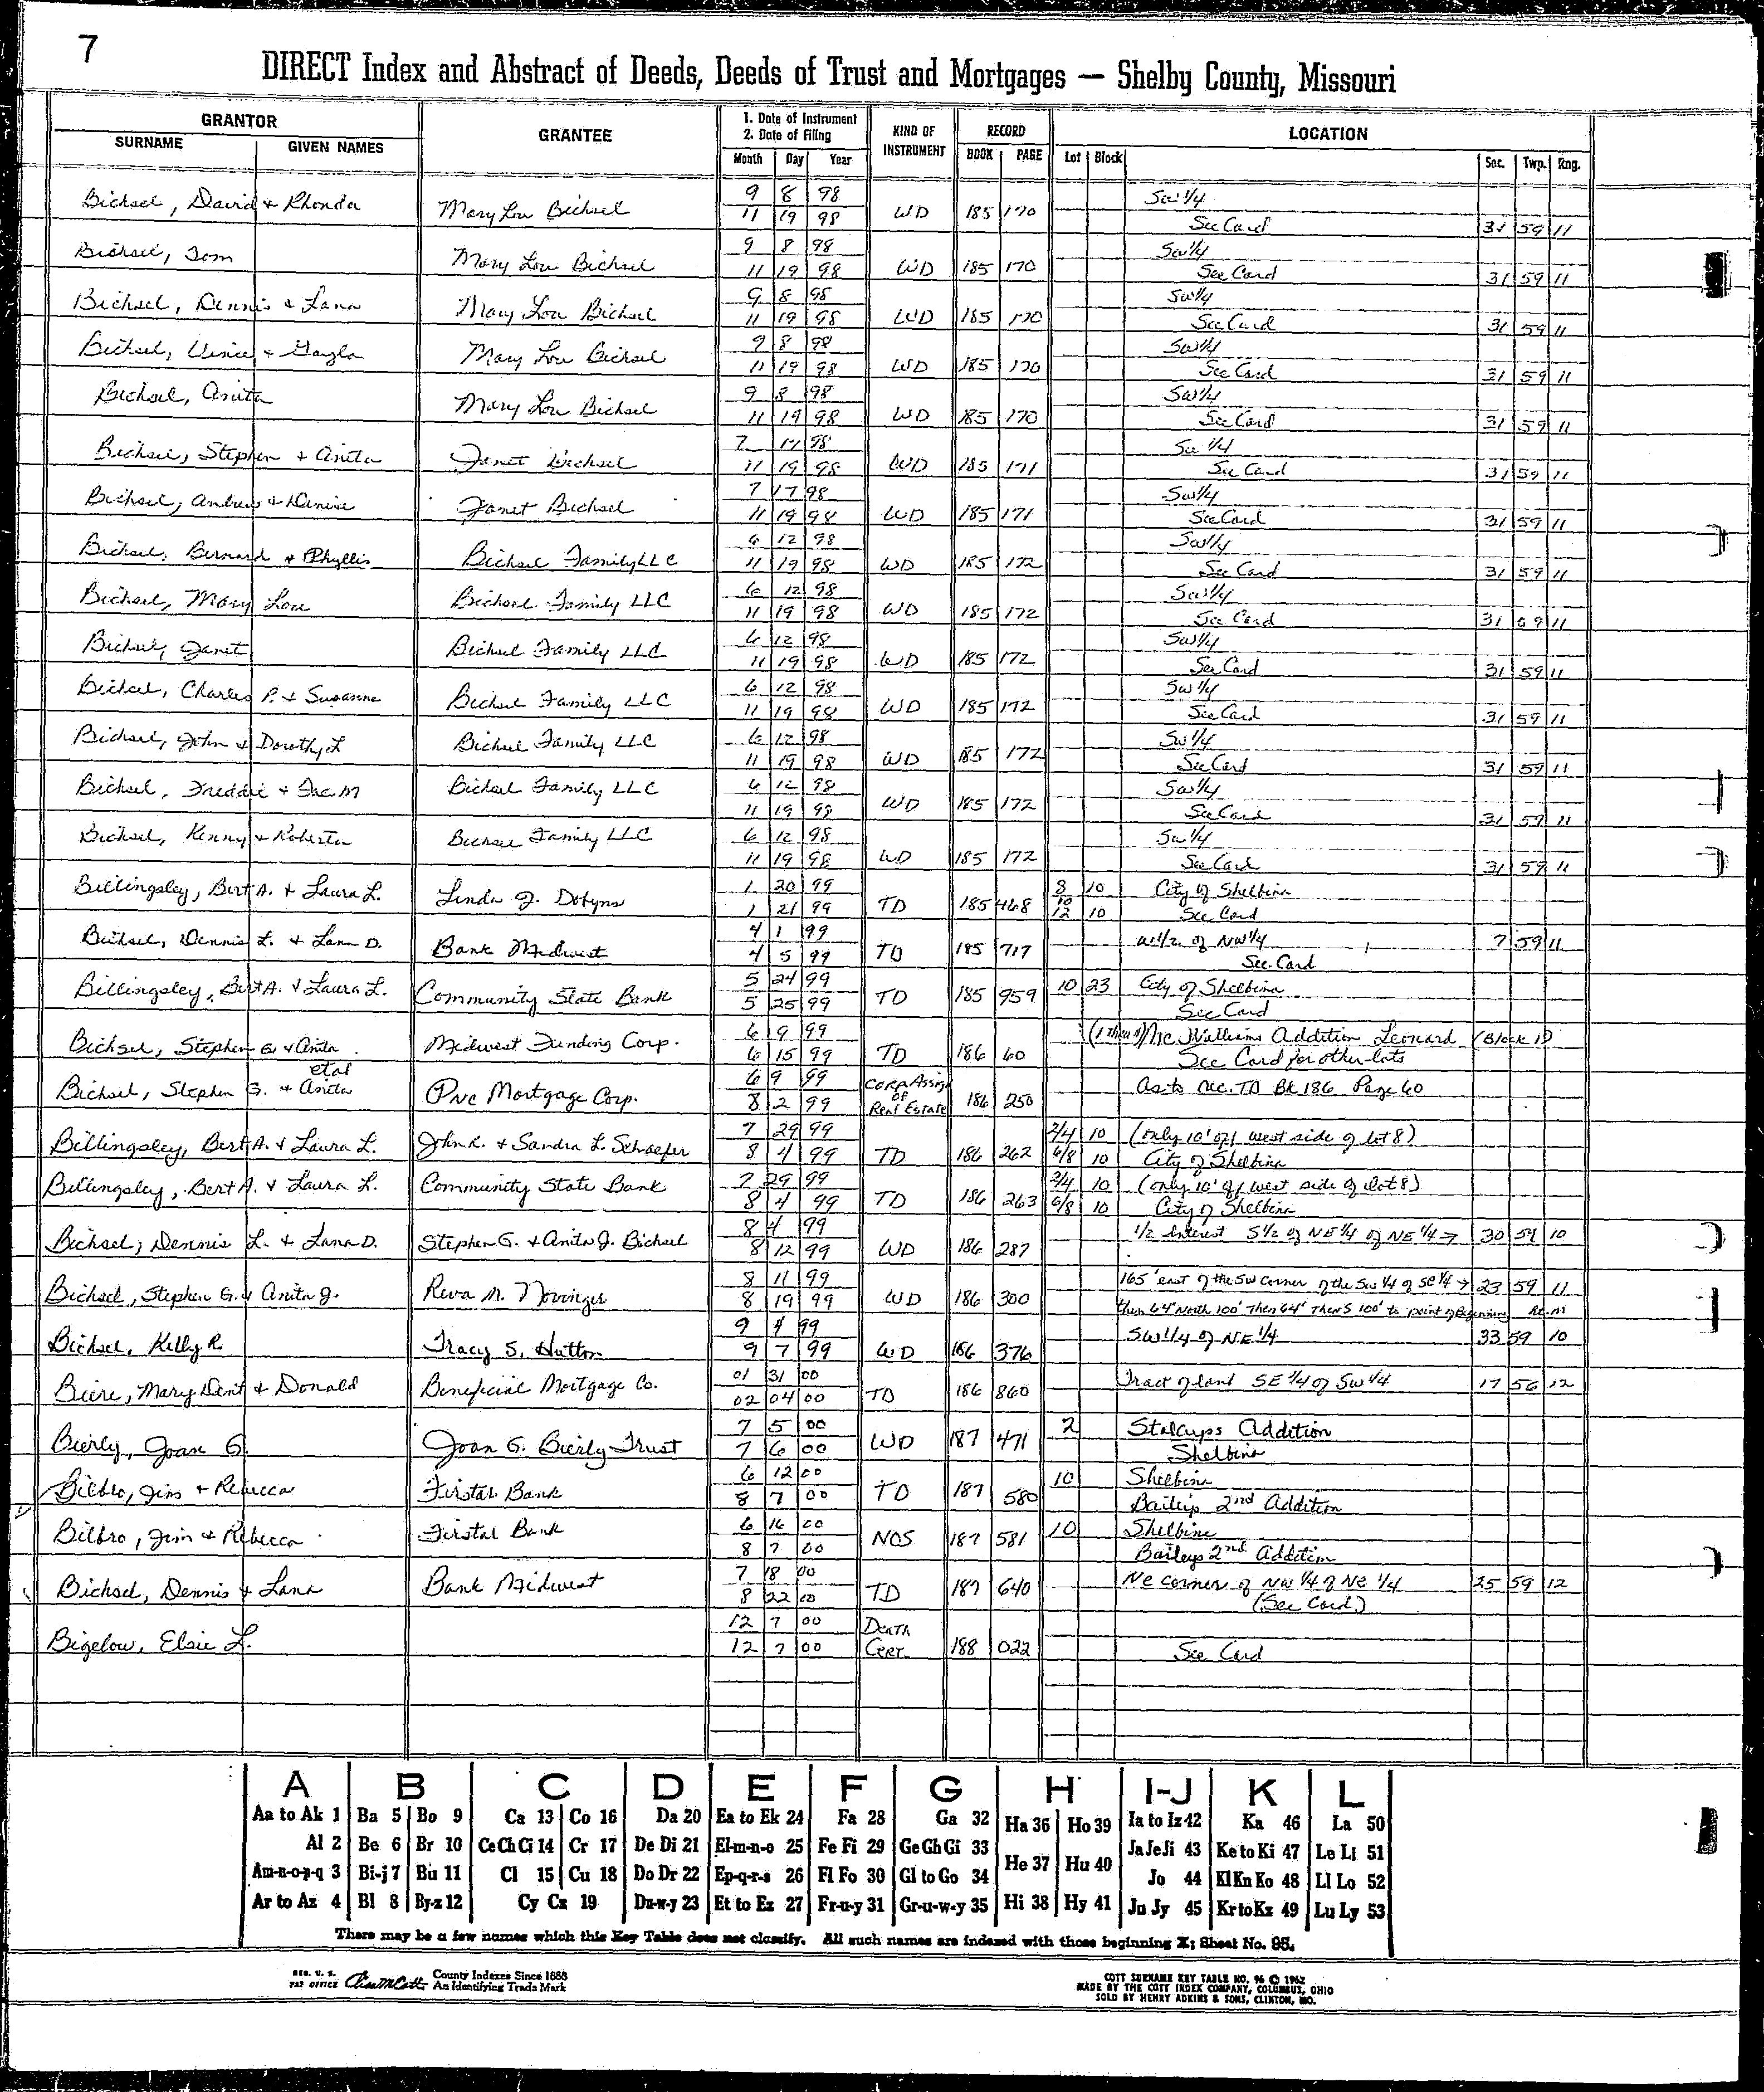 7
DIRECT Index and Abstract of Deeds, Deeds of Trust and Mortgages — Shelby County, Missouri
GRANTOR GRANTEE 1. Date of Instrument 2. Date of Filing KIND OF INSTRUMENT RECORD LOCATION
SURNAME GIVEN NAMES Month Day Year BOOK PAGE Lot Block Sec. Twp. Rng.
Bichsel, David & Rhonda Mary Lou Bichsel 9 8 98 SW 1/4
11 19 98 WD 185 170 See Card 31 59 11
Bichsel, Tom Mary Lou Bichsel 9 8 98 SW 1/4
11 19 98 WD 185 170 See Card 31 59 11
Bichsel, Dennis & Lana Mary Lou Bichsel 9 8 98 SW 1/4
11 19 98 WD 185 170 See Card 31 59 11
Bichsel, Vince & Gayla Mary Lou Bichsel 9 8 98 SW 1/4
11 19 98 WD 185 170 See Card 31 59 11
Bichsel, Anita Mary Lou Bichsel 9 8 98 SW 1/4
11 19 98 WD 185 170 See Card 31 59 11
Bichsel, Stephen & Anita Janet Bichsel 7 17 98 SW 1/4
11 19 98 WD 185 171 See Card 31 59 11
Bichsel, Andrew & Denise Janet Bichsel 7 17 98 SW 1/4
11 19 98 WD 185 171 See Card 31 59 11
Bichsel, Bernard & Phyllis Bichsel Family LLC 6 12 98 SW 1/4
11 19 98 WD 185 172 See Card 31 59 11
Bichsel, Mary Lou Bichsel Family LLC 6 12 98 SW 1/4
11 19 98 WD 185 172 See Card 31 59 11
Bichsel, Janet Bichsel Family LLC 6 12 98 SW 1/4
11 19 98 WD 185 172 See Card 31 59 11
Bichsel, Charles P. & Susanne Bichsel Family LLC 6 12 98 SW 1/4
11 19 98 WD 185 172 See Card 31 59 11
Bichsel, John & Dorothy L Bichsel Family LLC 6 12 98 SW 1/4
11 19 98 WD 185 172 See Card 31 59 11
Bichsel, Freddie & M Bichsel Family LLC 6 12 98 SW 1/4
11 19 98 WD 185 172 See Card 31 59 11
Bichsel, Kenny & Roberta Bichsel Family LLC 6 12 98 SW 1/4
11 19 98 WD 185 172 See Card 31 59 11
Billingsley, Bert A. & Laura L. Linda J. Dobyns 1 20 99 8 10 City of Shelbina
1 21 99 TD 185 468 10 12 10 See Card
Bichsel, Dennis L. & Lana D. Bank Midwest 4 1 99 W 1/2 of NW 1/4 7 59 11
4 5 99 TD 185 717 See Card
Billingsley, Bert A. & Laura L. Community State Bank 5 24 99 10 23 City of Shelbina
5 25 99 TD 185 959 See Card
Bichsel, Stephen G. & Anita Midwest Funding Corp. 6 9 99 McWilliams Addition Leonard (Block 1)
6 15 99 TD 186 60 See Card for other lots
Bichsel, Stephen G. & Anita etal PNC Mortgage Corp. 6 9 99 Corp Assign of Real Estate As to rec. TD Bk 186 Page 60
8 2 99 186 250
Billingsley, Bert A. & Laura L. John R. & Sandra L. Schaefer 7 29 99 2/4 10 (only 10' of west side of lot 8)
8 4 99 TD 186 262 6/8 10 City of Shelbina
Billingsley, Bert A. & Laura L. Community State Bank 7 29 99 2/4 10 (only 10' of west side of lot 8)
8 4 99 TD 186 263 6/8 10 City of Shelbina
Bichsel, Dennis L. & Lana D. Stephen G. & Anita J. Bichsel 8 4 99 1/2 interest S 1/2 of NE 1/4 of NE 1/4 → 30 59 10
8 12 99 WD 186 287
Bichsel, Stephen G. & Anita J. Reva M. Novinger 8 11 99 165' east of the SW corner of the SW 1/4 of SE 1/4 → 23 59 11
8 19 99 WD 186 300 then 64' North 100' Then 64' Then S 100' to point of Beginning
Bichsel, Kelly R. Tracy S. Hutton 9 4 99 SW 1/4 of NE 1/4 33 59 10
9 7 99 WD 186 376
Biere, Mary Dent & Donald Beneficial Mortgage Co. 01 31 00 Tract of land SE 1/4 of SW 1/4 17 56 12
02 04 00 TD 186 860
Bierly, Joan G. Joan G. Bierly Trust 7 5 00 2 Stalcups Addition
7 6 00 WD 187 471 Shelbina
Bilbro, Jim & Rebecca Firstar Bank 6 12 00 10 Shelbina
8 7 00 TD 187 580 Baileys 2nd Addition
Bilbro, Jim & Rebecca Firstar Bank 6 16 00 10 Shelbina
8 7 00 NOS 187 581 Baileys 2nd Addition
Bichsel, Dennis & Lana Bank Midwest 7 18 00 NE corner of NW 1/4 of NE 1/4 25 59 12
8 22 00 TD 187 640 (See Card)
Bigelow, Elsie L. 12 7 00 Death
12 7 00 Cert. 188 022 See Card
A B C D E F G H I-J K L
Aa to Ak 1 Ba 5 Bo 9 Ca 13 Co 16 Da 20 Ea to Ek 24 Fa 28 Ga 32 Ha 36 Ho 39 Ia to Iz 42 Ka 46 La 50
Al 2 Be 6 Br 10 Ce Ch Ci 14 Cr 17 De Di 21 El-m-n-o 25 Fe Fi 29 Ge Gh Gi 33 He 37 Hu 40 Ja Je Ji 43 Ke to Ki 47 Le Li 51
Am-n-o-p-q 3 Bi-j 7 Bu 11 Cl 15 Cu 18 Do Dr 22 Ep-q-r-s 26 Fl Fo 30 Gl to Go 34 Jo 44 Kl Kn Ko 48 Ll Lo 52
Ar to Az 4 Bl 8 By-z 12 Cy Cz 19 Du-w-y 23 Et to Ez 27 Fr-u-y 31 Gr-u-w-y 35 Hi 38 Hy 41 Ju Jy 45 Kr to Kz 49 Lu Ly 53
There may be a few names which this Key Table does not classify. All such names are indexed with those beginning X; Sheet No. 95.
REG. U. S. PAT OFFICE County Indexes Since 1888 An Identifying Trade Mark
COTT SURNAME KEY TABLE NO. 96 © 1962
MADE BY THE COTT INDEX COMPANY, COLUMBUS, OHIO
SOLD BY HENRY ADKINS & SONS, CLINTON, MO.